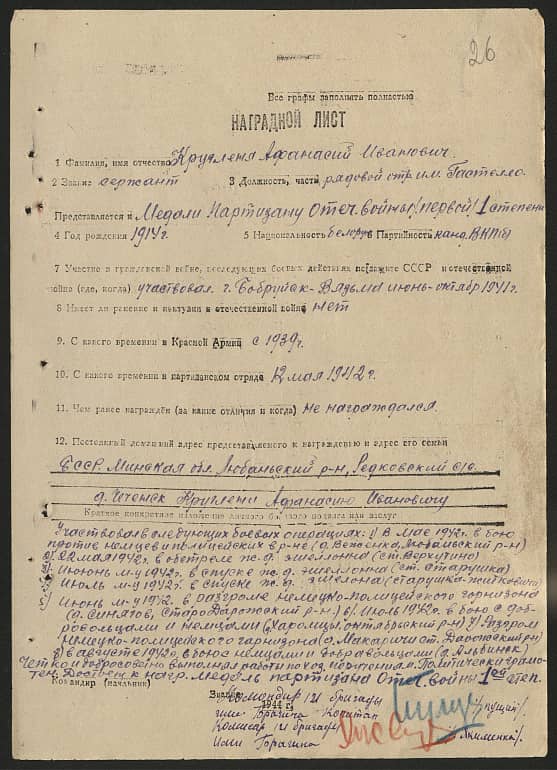 26
Все графы заполнять полностью
НАГРАДНОЙ ЛИСТ
1 Фамилия, имя отчество Кругленя Афанасий Иванович.
2 Звание сержант 3 Должность, часть рядовой отр. им. Гастелло.
Представляется к Медали Партизану Отеч. войны /первой/ 1 степени
4 Год рождения 1914 г. 5 Национальность белорус Партийность канд. ВКП(б)
7 Участие в гражданской войне, последующих боевых действиях по защите СССР и отечественной
войне (где, когда) участвовал г. Бобруйск-Вязьма июнь-октябр 1941 г.
8 Имеет ли ранение и контузии в отечественной войне нет
9. С какого времени в Красной Армии с 1939 г.
10. С какого времени в партизанском отряде 12 мая 1942 г.
11. Чем ранее награждён (за какие отличия и когда) не награждался.
12. Постоянный домашний адрес представляемого к награждению и адрес его семьи
БССР. Минская обл. Любаньский р-н, Редковский с/с.
д. Кругленя Афанасию Ивановичу
Краткое конкретное изложение личного боевого подвига или заслуг
Участвовал в следующих боевых операциях: 1) В мае 1942 г. в бою
против немцев и полицейских в р-не (д.
2) 22 мая 1942 г. в обстреле ж.д. эшеллонна (ст. Верхутино)
Июнь м-ц 1942 г. в спуске ж.д. эшеллонна (ст. Старушка)
Июль м-ц 1942 г. в спуске ж.д. эшелонна (старушка-житковичи)
5) Июнь м-ц 1942 г. в разгроме немецко-полицейского горнизона
(д. Синягов, Стародорожский р-н.) 6) Июль 1942 г. в бою с доб-
ровольцами и немцами (Харомцы, октябрьский р-н) 7) Разгром
немецко-полицейского горнизона (д. Макаричи
8) в августе 1942 г. в бою с немцами и добравольцами (д. Альбинск)
Четко и добросовесно выполнял работы Политически грамо-
тен. Достоен к нагр. медаль партизана Отеч. войны 1ой степ.
Командир (начальник)
Звание Командир 121 бригады
1944 г.
имени Брагина Капитан /Пущин/
Комисар 121 бригады
Имени Брагина /Якименко/